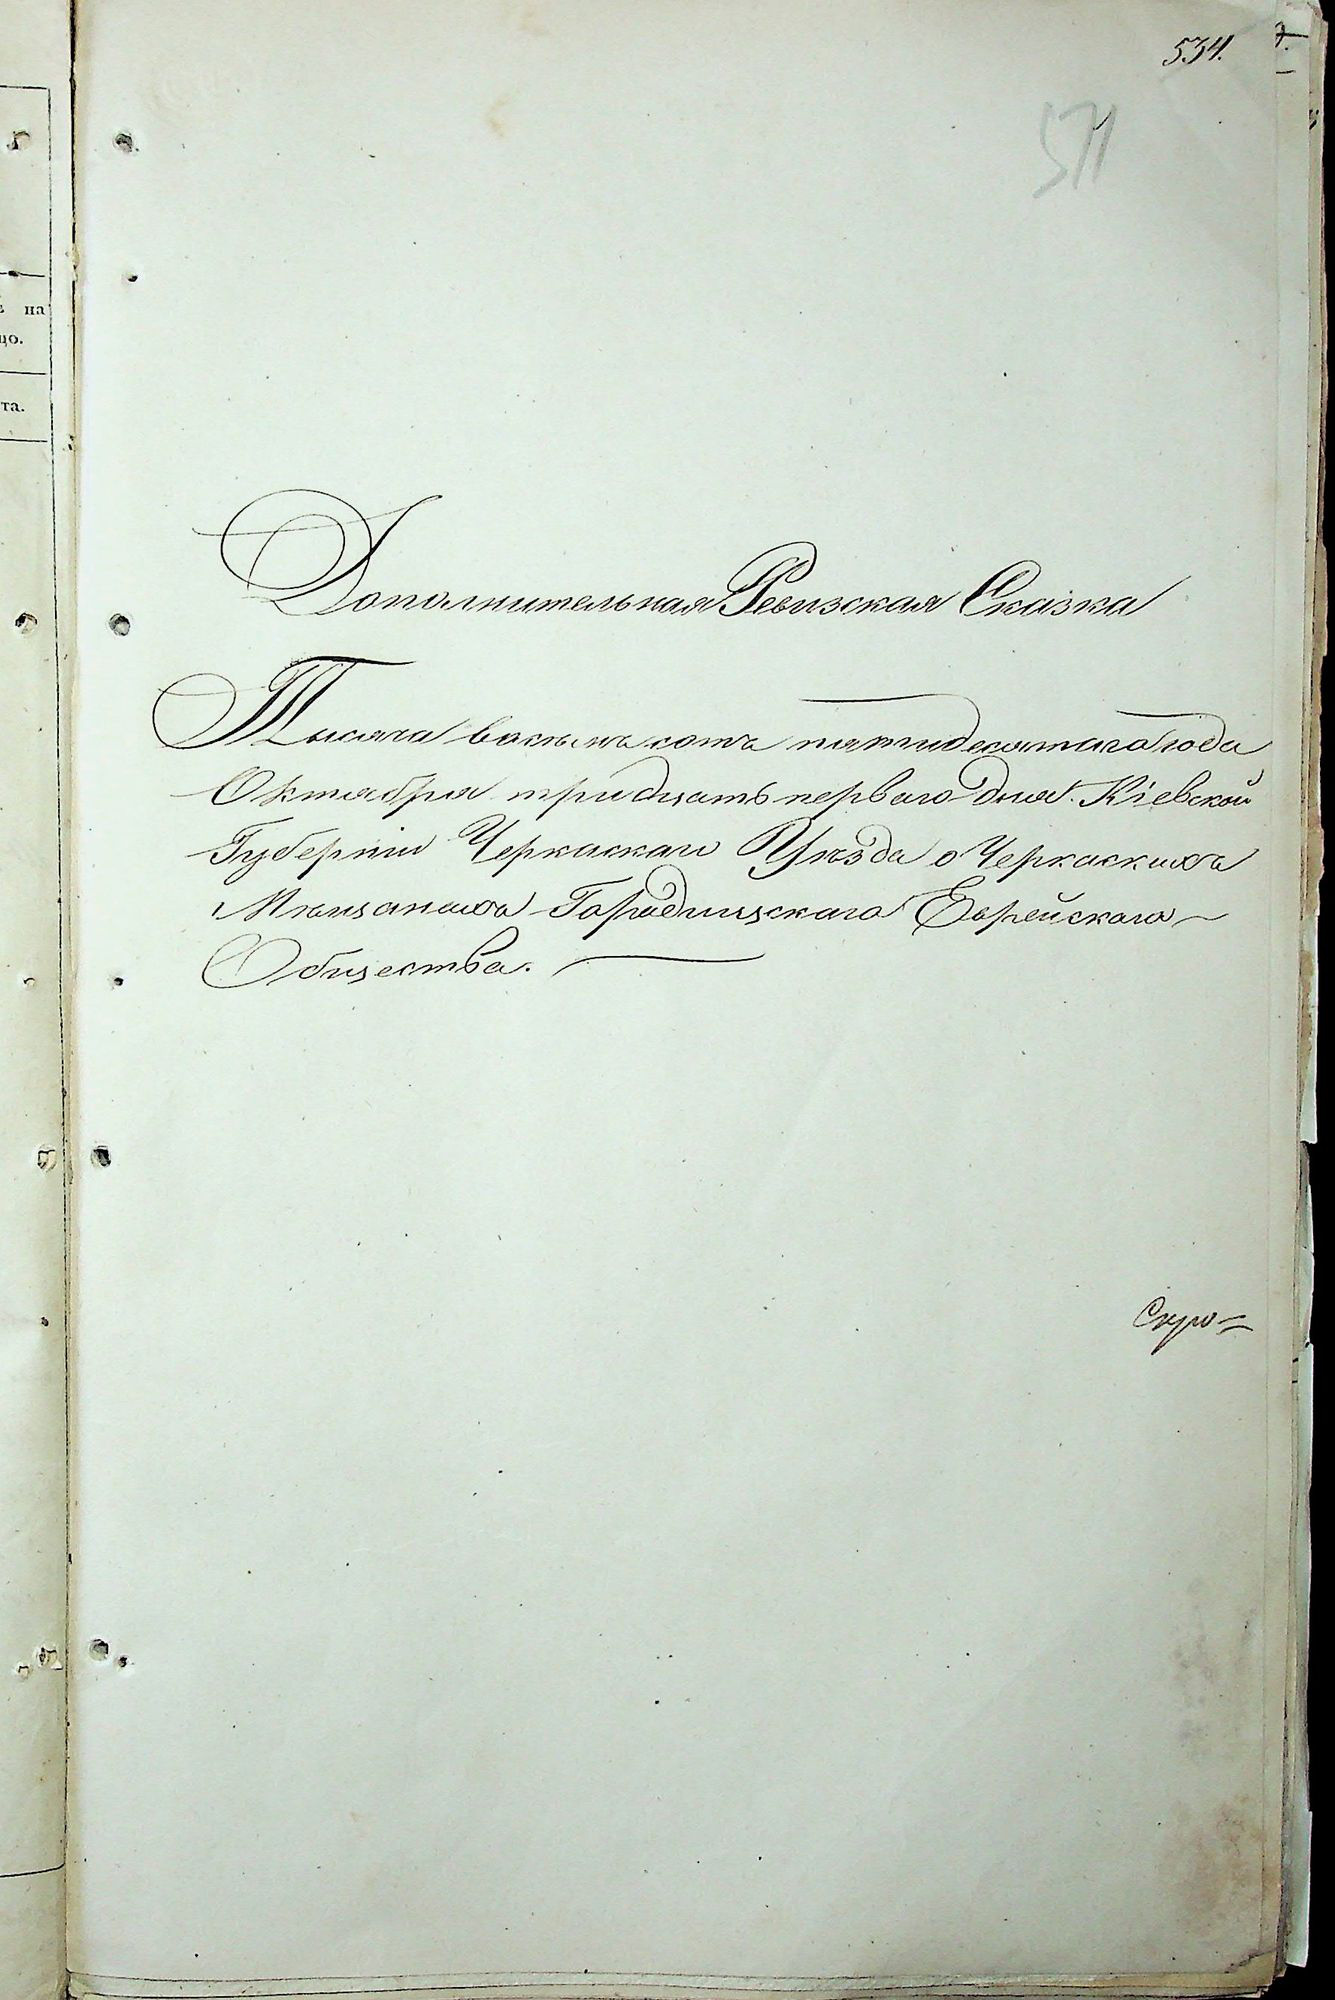 534.
571
на
цо.
та.
Дополнительная Ревизская Сказка
Тысяча восемь сотъ пятидесятаго года
Октября тридцать перваго дня. Кіевской
Губерніи Черкаскаи Уѣзда о Черкаскихъ
Мѣщанахъ Городищскаго Еврейскаго
Общества.